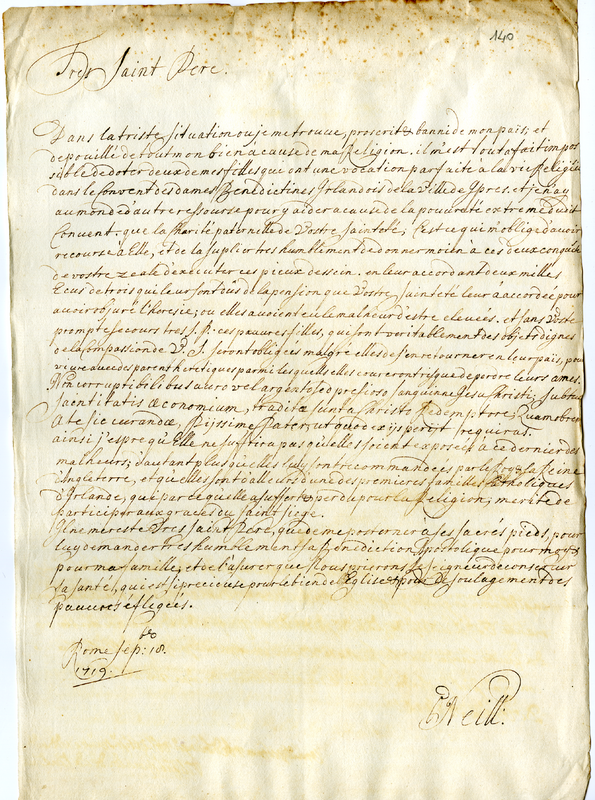 140
Tres Saint Pere.
Dans la triste situation ou je me trouve, proscrit & banni de mon pais; et
depouillé de tout mon bien à cause de ma Religion. il m'est tout a fait impos
sible de doter deux de mes filles qui ont une vocation parfaite à la vie Religieu
dans le Convent des dames Bénédictines Irlandois de la Ville de Ypres. et je n'ay
au monde d'autre ressourse pour y aider a cause de la pouvreté extreme du dit
Convent. que la charité paternelle de Vostre Sainteté, C'est ce qui m'oblige d'avoir
recourse à Elle, et de la suplier tres humblement de donner moien à ces deux conquetes
de vostre zeale d'executer ce pieux dessein. en leur accordant deux milles
Ecus de trois qui leur sont dûs de la pension que Vostre Sainteté leur à accordée pour
avoir abjuré l'heresie; ou elles avoient eu le malheur d'estre elevées. et sans Vostre
prompte secours tres S. P. ces pauvres filles, qui sont veritablement des objets dignes
de la Compassion de V. S. seront obligées malgré elles de s'en retourner en leur pais, pour
vivre avec des parent heretiques parmi lesquells elles coureront risque de perdre leurs ames.
Non corruptibilibus auro vel argento sed presioso sanguinne Jesu Christi, sub tuæ
Sanctitatis œconomium, traditæ sunt a Christo Redemptore, Quamobrem
A te sic curandæ, Piissime Pater, ut quod eis perit requiras.
ainsi j'espre qu'Elle ne justira pas qu'elles soient exposées à ce dernier des
malheurs; d'autant plus qu'elles luy sont recommandées par le Roy & la Reine
d'Angleterre, et qu'elles sont d'alleurs d'une des premieres familles Catholiques
d'Irlande, qui par ce qu'elle a suffert & perdu pour la Religion; merite de
participir aux graces du Saint Siege.
Il ne me reste Tres Saint Pere, que de me posterner à ses sacrés pieds, pour
luy demander tres humblement sa Benediction Apostolique pour moy &
pour ma famille, et de l'assurer que Nous prierons le Seigneur de conserver
sa santé, qui est si precieuse pour le bien de l'Eglise & pour le soulagement des
pauvres afligées.
Rome sep:bre 18.
1719.
ONeill: